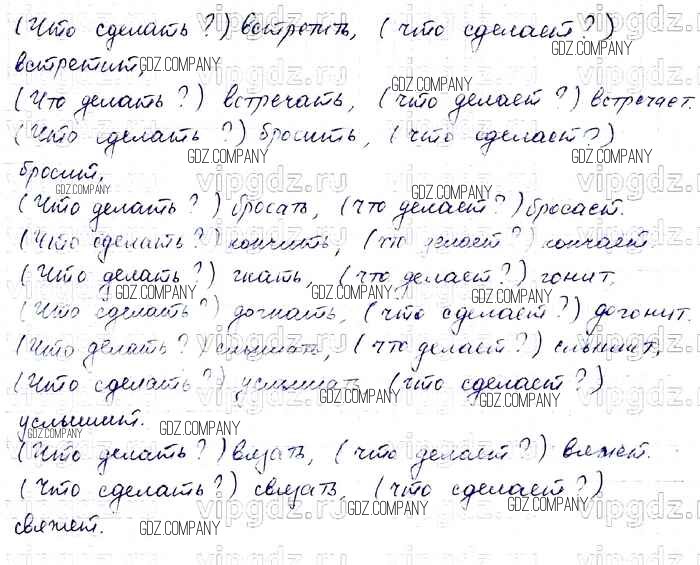 (Что сделать?) встретить, (что сделает?)
встретит,
(Что делать?) встречать, (что делает?) встречает.
(Что сделать?) бросить, (что сделает?)
бросит,
(Что делать?) бросать, (что делает?) бросает.
(Что сделать?) кончить, (что делает?) кончает.
(Что делать?) гнать, (что делает?) гонит,
(Что сделать?) догнать, (что сделает?) догонит.
(Что делать?) слышать, (что делает?) слышит,
(Что сделать?) услышать (что сделает?)
услышит.
(Что делать?) вязать, (что делает?) вяжет.
(Что сделать?) связать, (что сделает?)
свяжет.